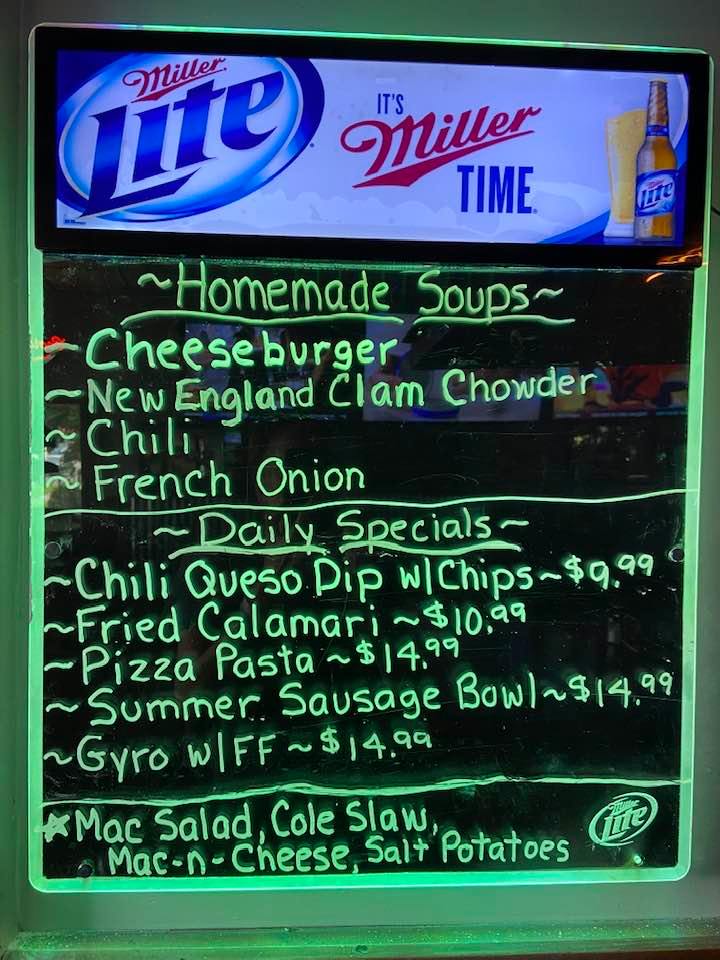 Miller
Lite
IT'S
Miller
TIME
~Homemade Soups~
~Cheeseburger
~New England Clam Chowder
~Chili
~French Onion
~Daily Specials~
~Chili Queso Dip w/Chips~$9.99
~Fried Calamari~$10.99
~Pizza Pasta~$14.99
~Summer Sausage Bowl~$14.99
~Gyro w/FF~$14.99
☆Mac Salad, Cole Slaw,
Mac-n-Cheese, Salt Potatoes
Miller
Lite